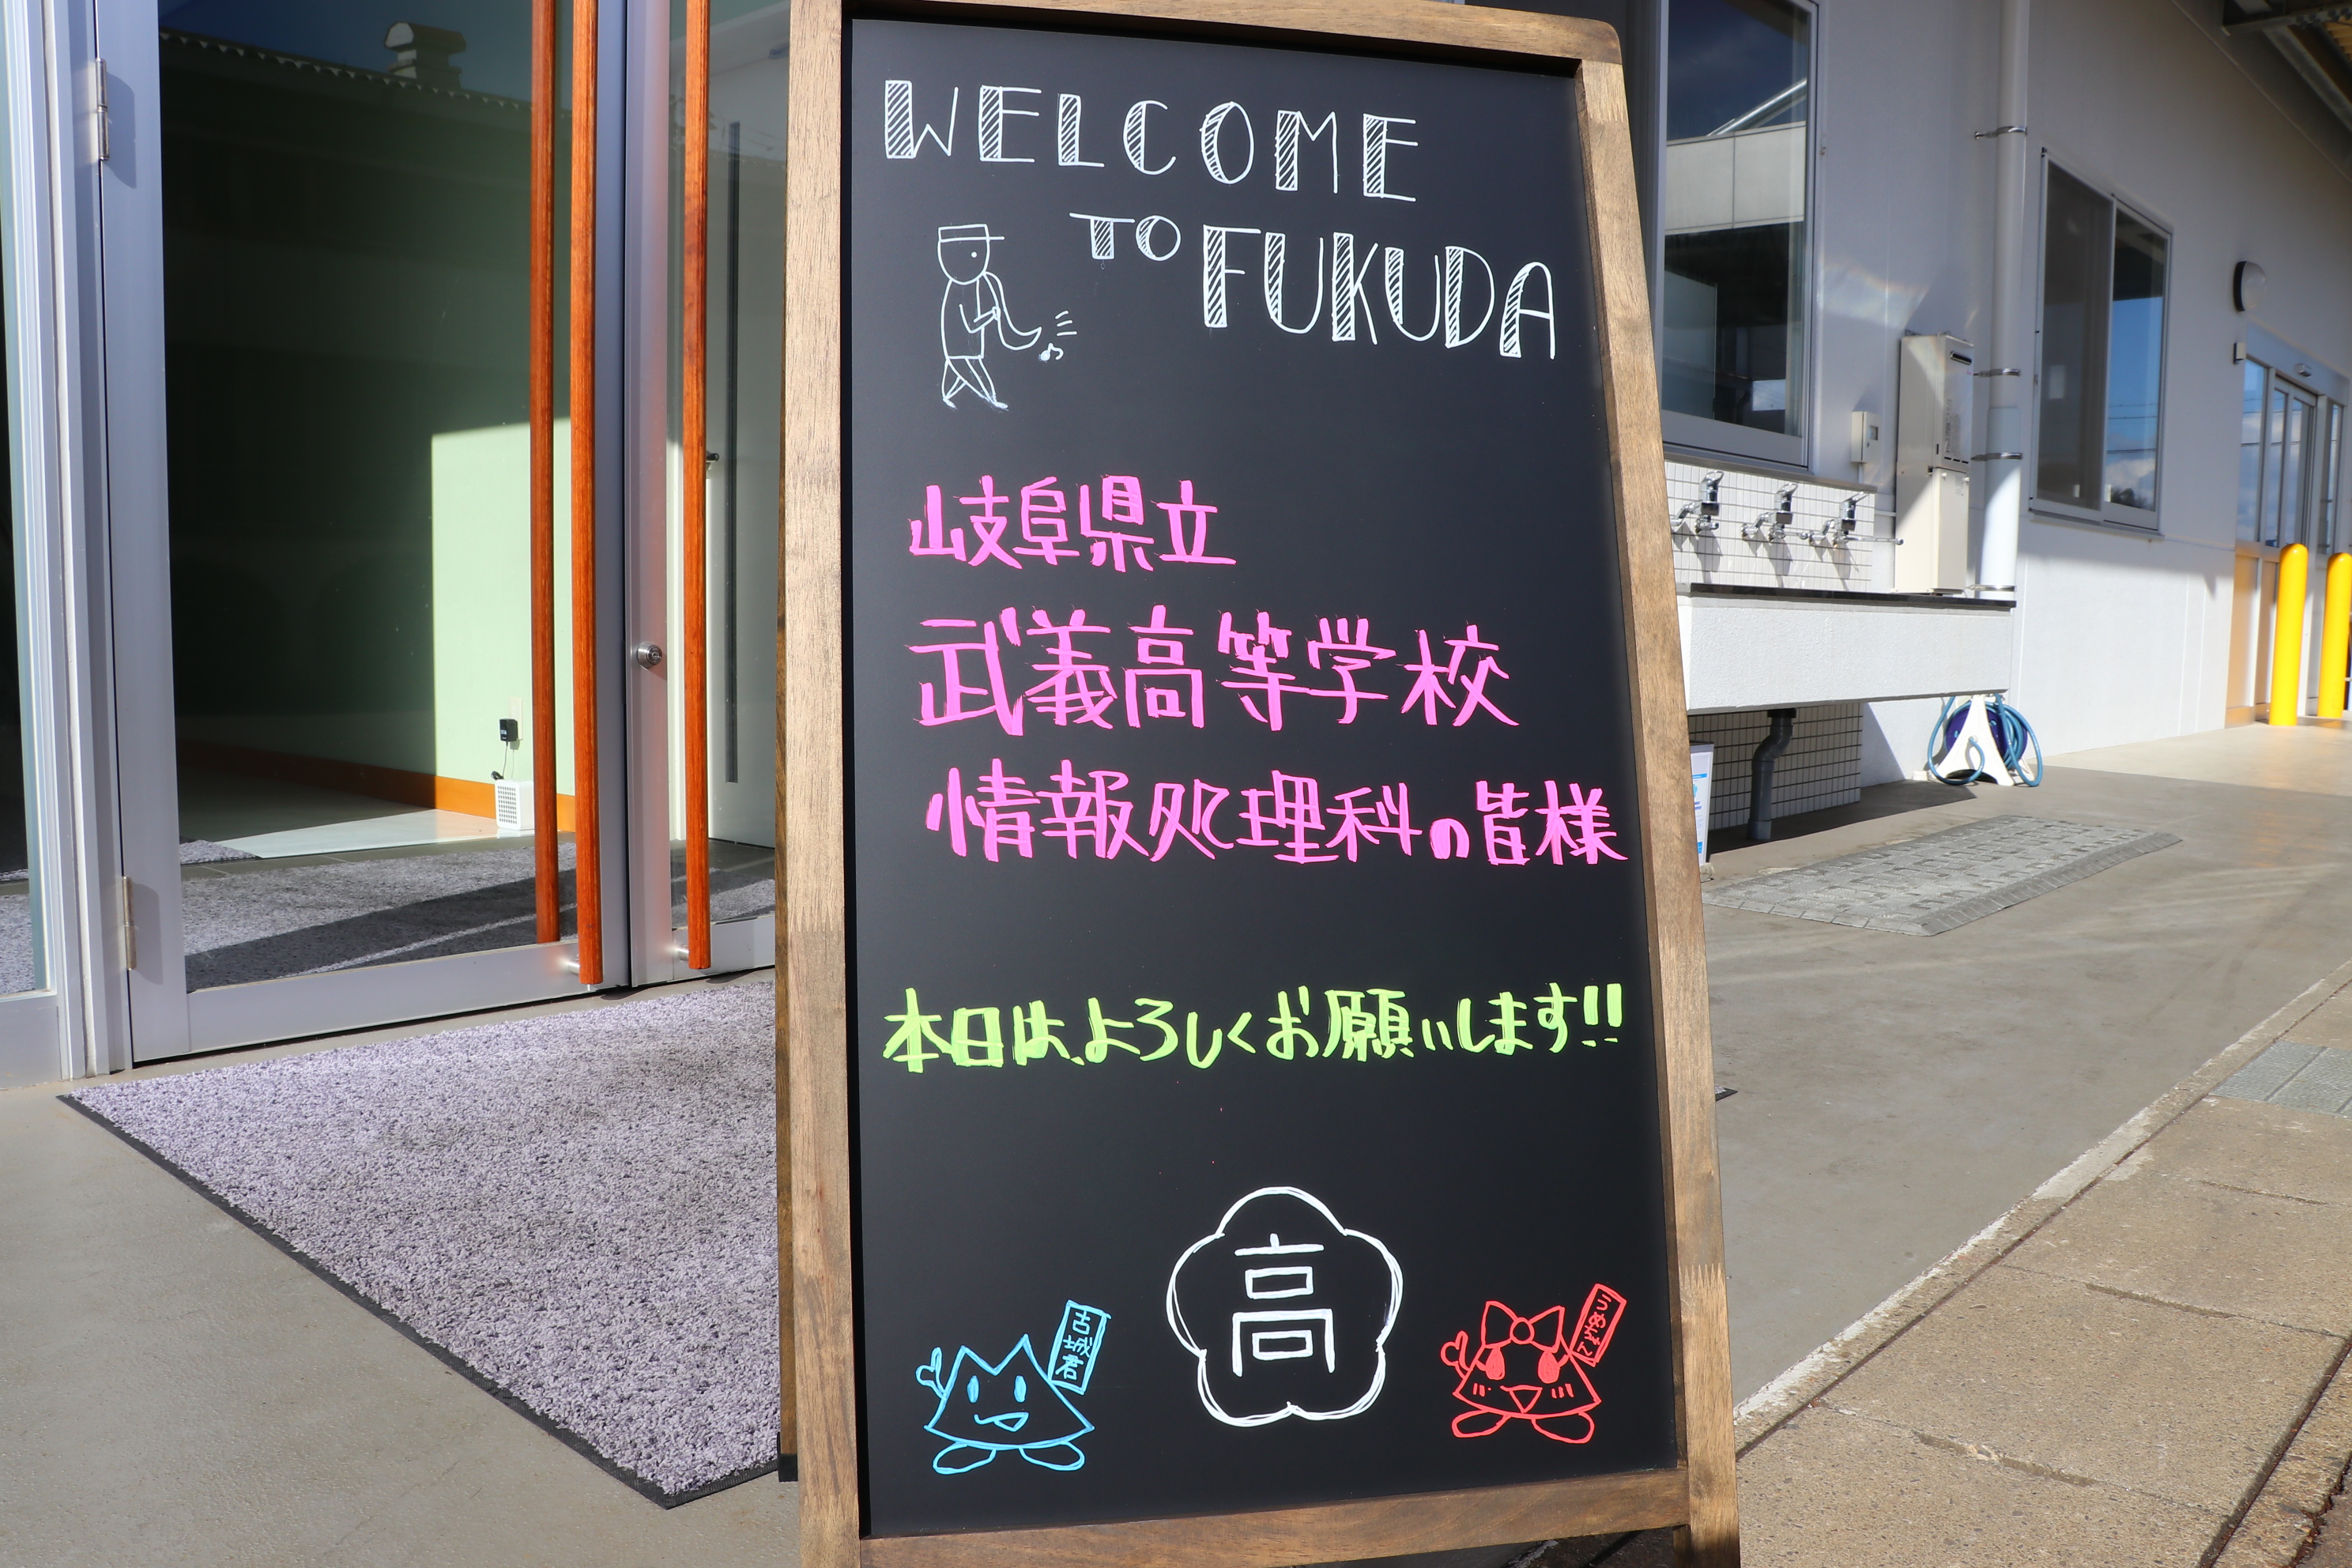 WELCOME
TO FUKUDA
岐阜県立
武義高等学校
情報処理科の皆様
本日は、よろしくお願いします!!
高
古城君